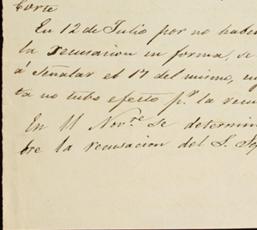 Corte
En 12 de Julio por no habe
la recusacion en forma, se
á Señalar el 17 del mismo, cuy
ta no tubo efecto p.r la recu
En 11 Nov.re se determin
bre la recusacion del S.